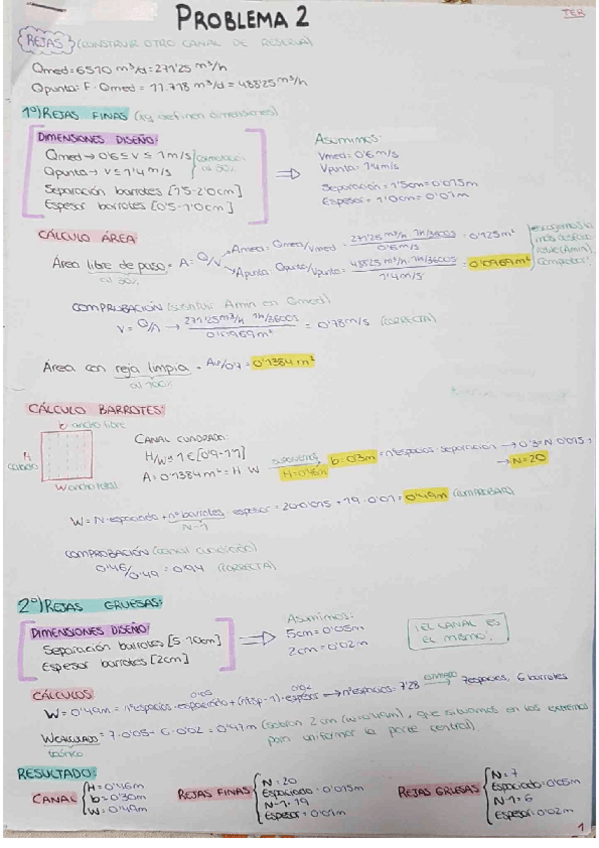 PROBLEMA 2
TER
REJAS: (CONSTRUIR OTRO CANAL DE RESERVA)
Qmed = 6510 m³/d = 271'25 m³/h
Qpunta: F · Qmed = 11.718 m³/d = 488'25 m³/h
1º) REJAS FINAS (xq definen dimensiones)
DIMENSIONES DISEÑO:
Qmed → 0'6 ≤ v ≤ 1 m/s
Qpunta → v ≤ 1'4 m/s
Separación barrotes [1'5-2'0cm]
Espesor barrotes [0'5-1'0cm]
Asumimos:
Vmed = 0'6 m/s
Vpunta = 1'4 m/s
Separación = 1'5cm = 0'015m
Espesor = 1'0cm = 0'01m
CÁLCULO ÁREA
Área libre de paso = A = Q/V
Amed = Qmed/Vmed = 271'25 m³/h · 1h/3600s / 0'6 m/s = 0'125 m²
Apunta = Qpunta/Vpunta = 488'25 m³/h · 1h/3600s / 1'4 m/s = 0'0969 m²
COMPROBACIÓN
V = Q/A → 271'25 m³/h · 1h/3600s / 0'0969 m² = 0'78 m/s (CORRECTA)
Área con reja limpia = = 0'1384 m²
CÁLCULO BARROTES:
b ancho libre
H
calado
W ancho total
CANAL CUADRADO:
H/W ≈ 1 € [0'9-1'1]
A = 0'1384 m² = H · W
H = 0'46m
b = 0'3m = nºespacios · separación → 0'3 = N · 0'015
→ N = 20
W = N · espaciado + nºbarrotes · espesor = 20 · 0'015 + 19 · 0'01 = 0'49m (COMPROBAR)
N-1
COMPROBACIÓN
0'46/0'49 = 0'94 (CORRECTA)
2º) REJAS GRUESAS:
DIMENSIONES DISEÑO:
Separación barrotes [5-10cm]
Espesor barrotes [2cm]
Asumimos:
5cm = 0'05m
2cm = 0'02m
¡EL CANAL ES
EL MISMO!
CÁLCULOS:
0'05 0'02
W = 0'49m = nºespacios · espaciado + (nºesp-1) · espesor → nºespacios = 7'28 → 7 espacios, 6 barrotes
Wcalculado = 7 · 0'05 - 6 · 0'02 = 0'47m (sobran 2cm (W=0'49m), que situamos en los extremos
para uniformar la parte central)
RESULTADO:
CANAL
H = 0'46m
b = 0'30m
W = 0'49m
REJAS FINAS
N = 20
Espaciado = 0'015m
N-1 = 19
Espesor = 0'01m
REJAS GRUESAS
N = 7
Espaciado = 0'05m
N-1 = 6
Espesor = 0'02m
1